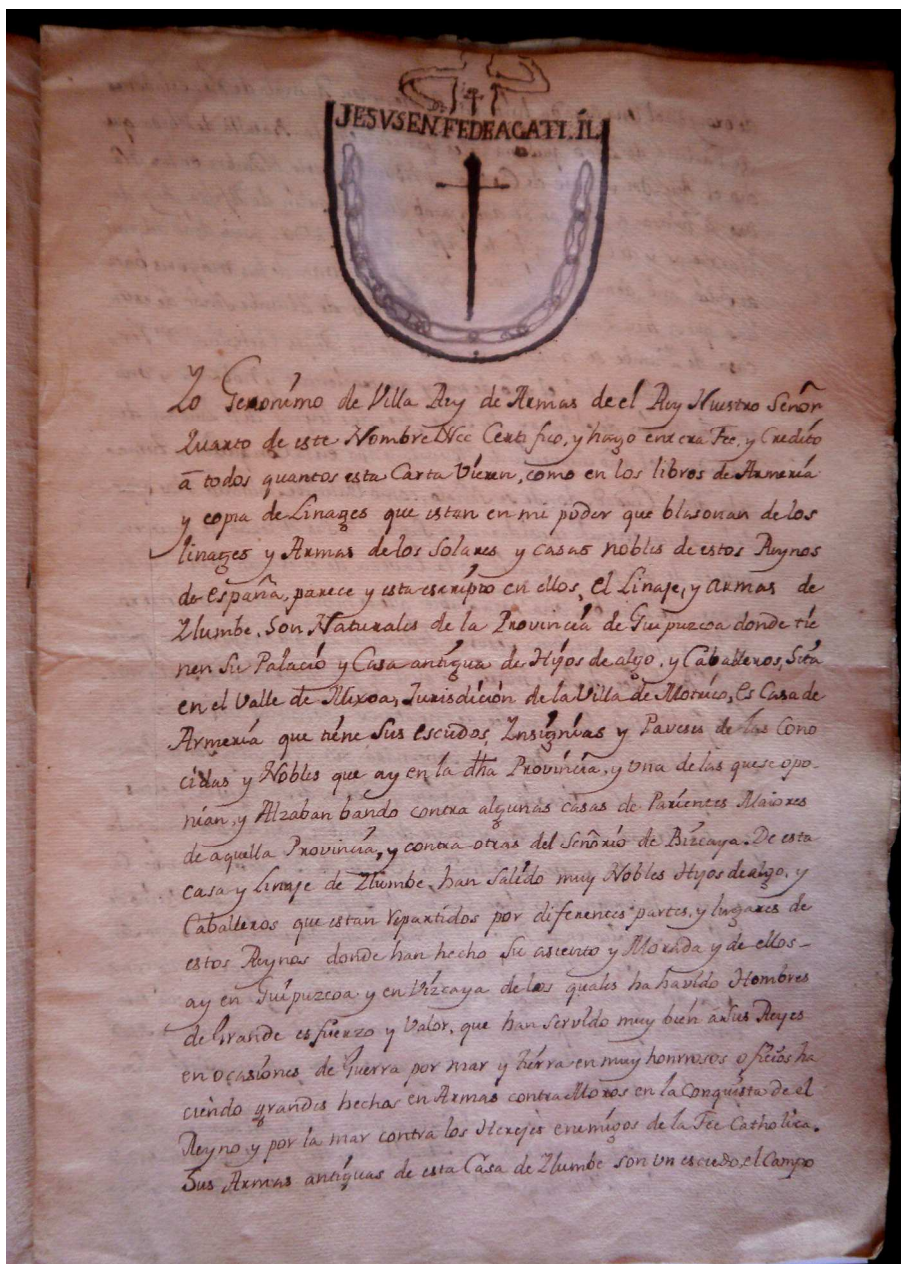 JESVS EN FEDEAGATI. ÍL
Yo Geronimo de Villa Rey de Armas de el Rey Nuestro Señor
Quarto de este Nombre Certifico, y hago entera Fee, y Credito
a todos quantos esta Carta Vieren, como en los libros de Armeria
y copia de Linages que estan en mi poder que blasonan de los
linages y Armas de los Solares y casas nobles de estos Reynos
de España, parece y esta escripto en ellos, el Linaje, y armas de
Ylumbe, Son Naturales de la Provincia de Guipuzcoa donde tie
nen Su Palacio y Casa antigua de Hijos de algo, y Caballeros, Sita
en el Valle de Mixoa, Jurisdición de la Villa de Motrico, Es Casa de
Armería que tiene Sus escudos, Ynsignias y Paveses de las Cono
cidas y Nobles que ay en la dha Provincia, y una de las que se opo-
nian, y Alzaban bando contra algunas casas de Parientes Maiores
de aquella Provincia, y contra otras del Señorío de Bizcaya. De esta
casa y Linaje de Ylumbe han Salido muy Nobles Hijos de algo, y
Caballeros que estan repartidos por diferentes partes, y lugares de
estos Reynos donde han hecho Su asiento y Morada y de ellos-
ay en Guipuzcoa y en Vizcaya de los quales ha havido Hombres
de Grande esfuerzo y Valor, que han Servido muy bien a Sus Reyes
en ocasiones de Guerra por mar y tierra en muy honrrosos oficios ha
ciendo grandes hechos en Armas contra Moros en la Conquista de el
Reyno, y por la mar contra los Herejes enemigos de la Fee Catholica.
Sus Armas antiguas de esta Casa de Ylumbe son Un escudo, el Campo